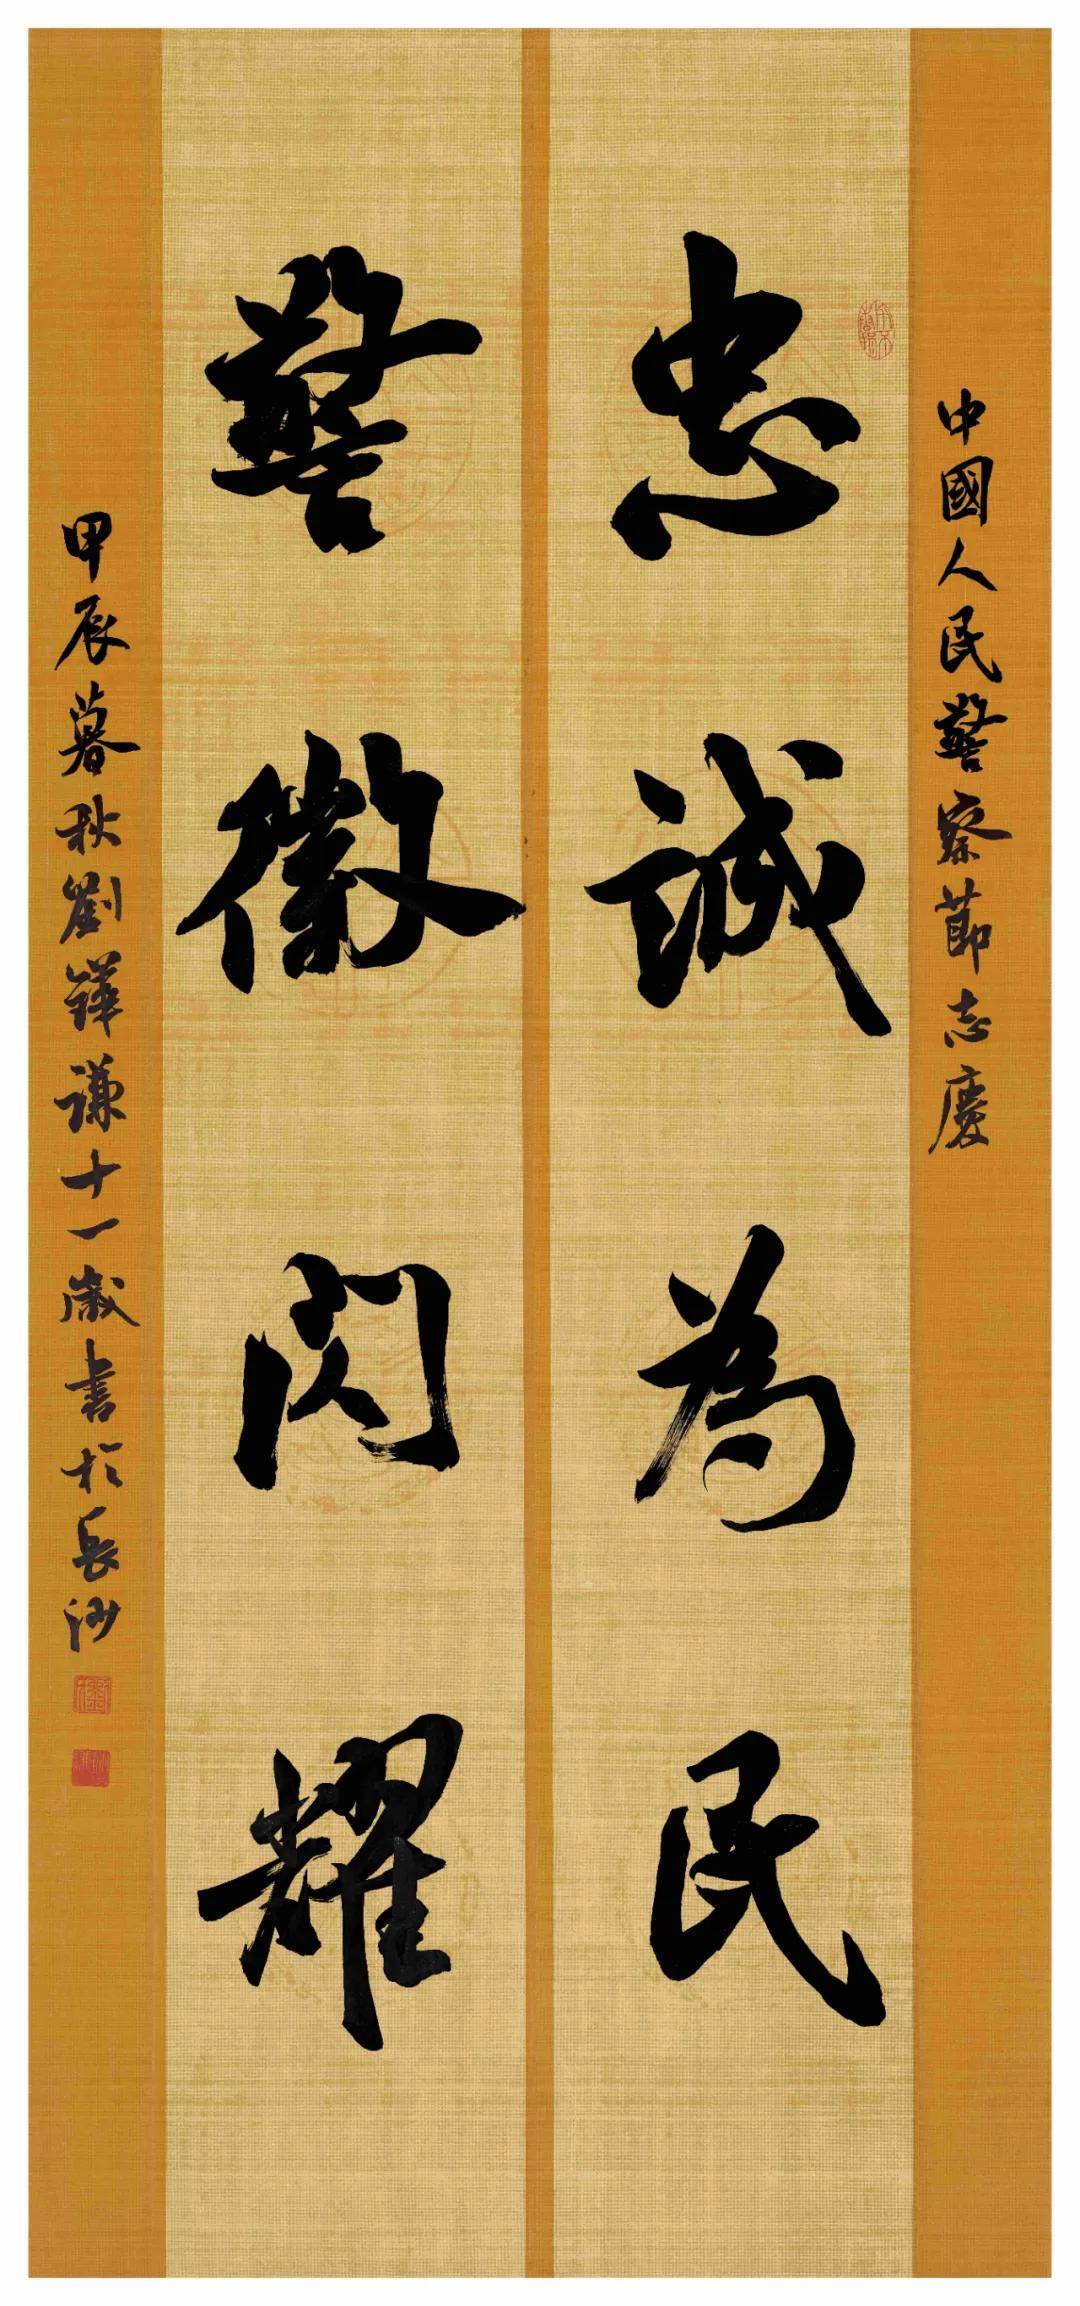 中國人民警察節志慶
忠誠為民
警徽閃耀
甲辰暮秋劉鏵謙十一歲書於長沙